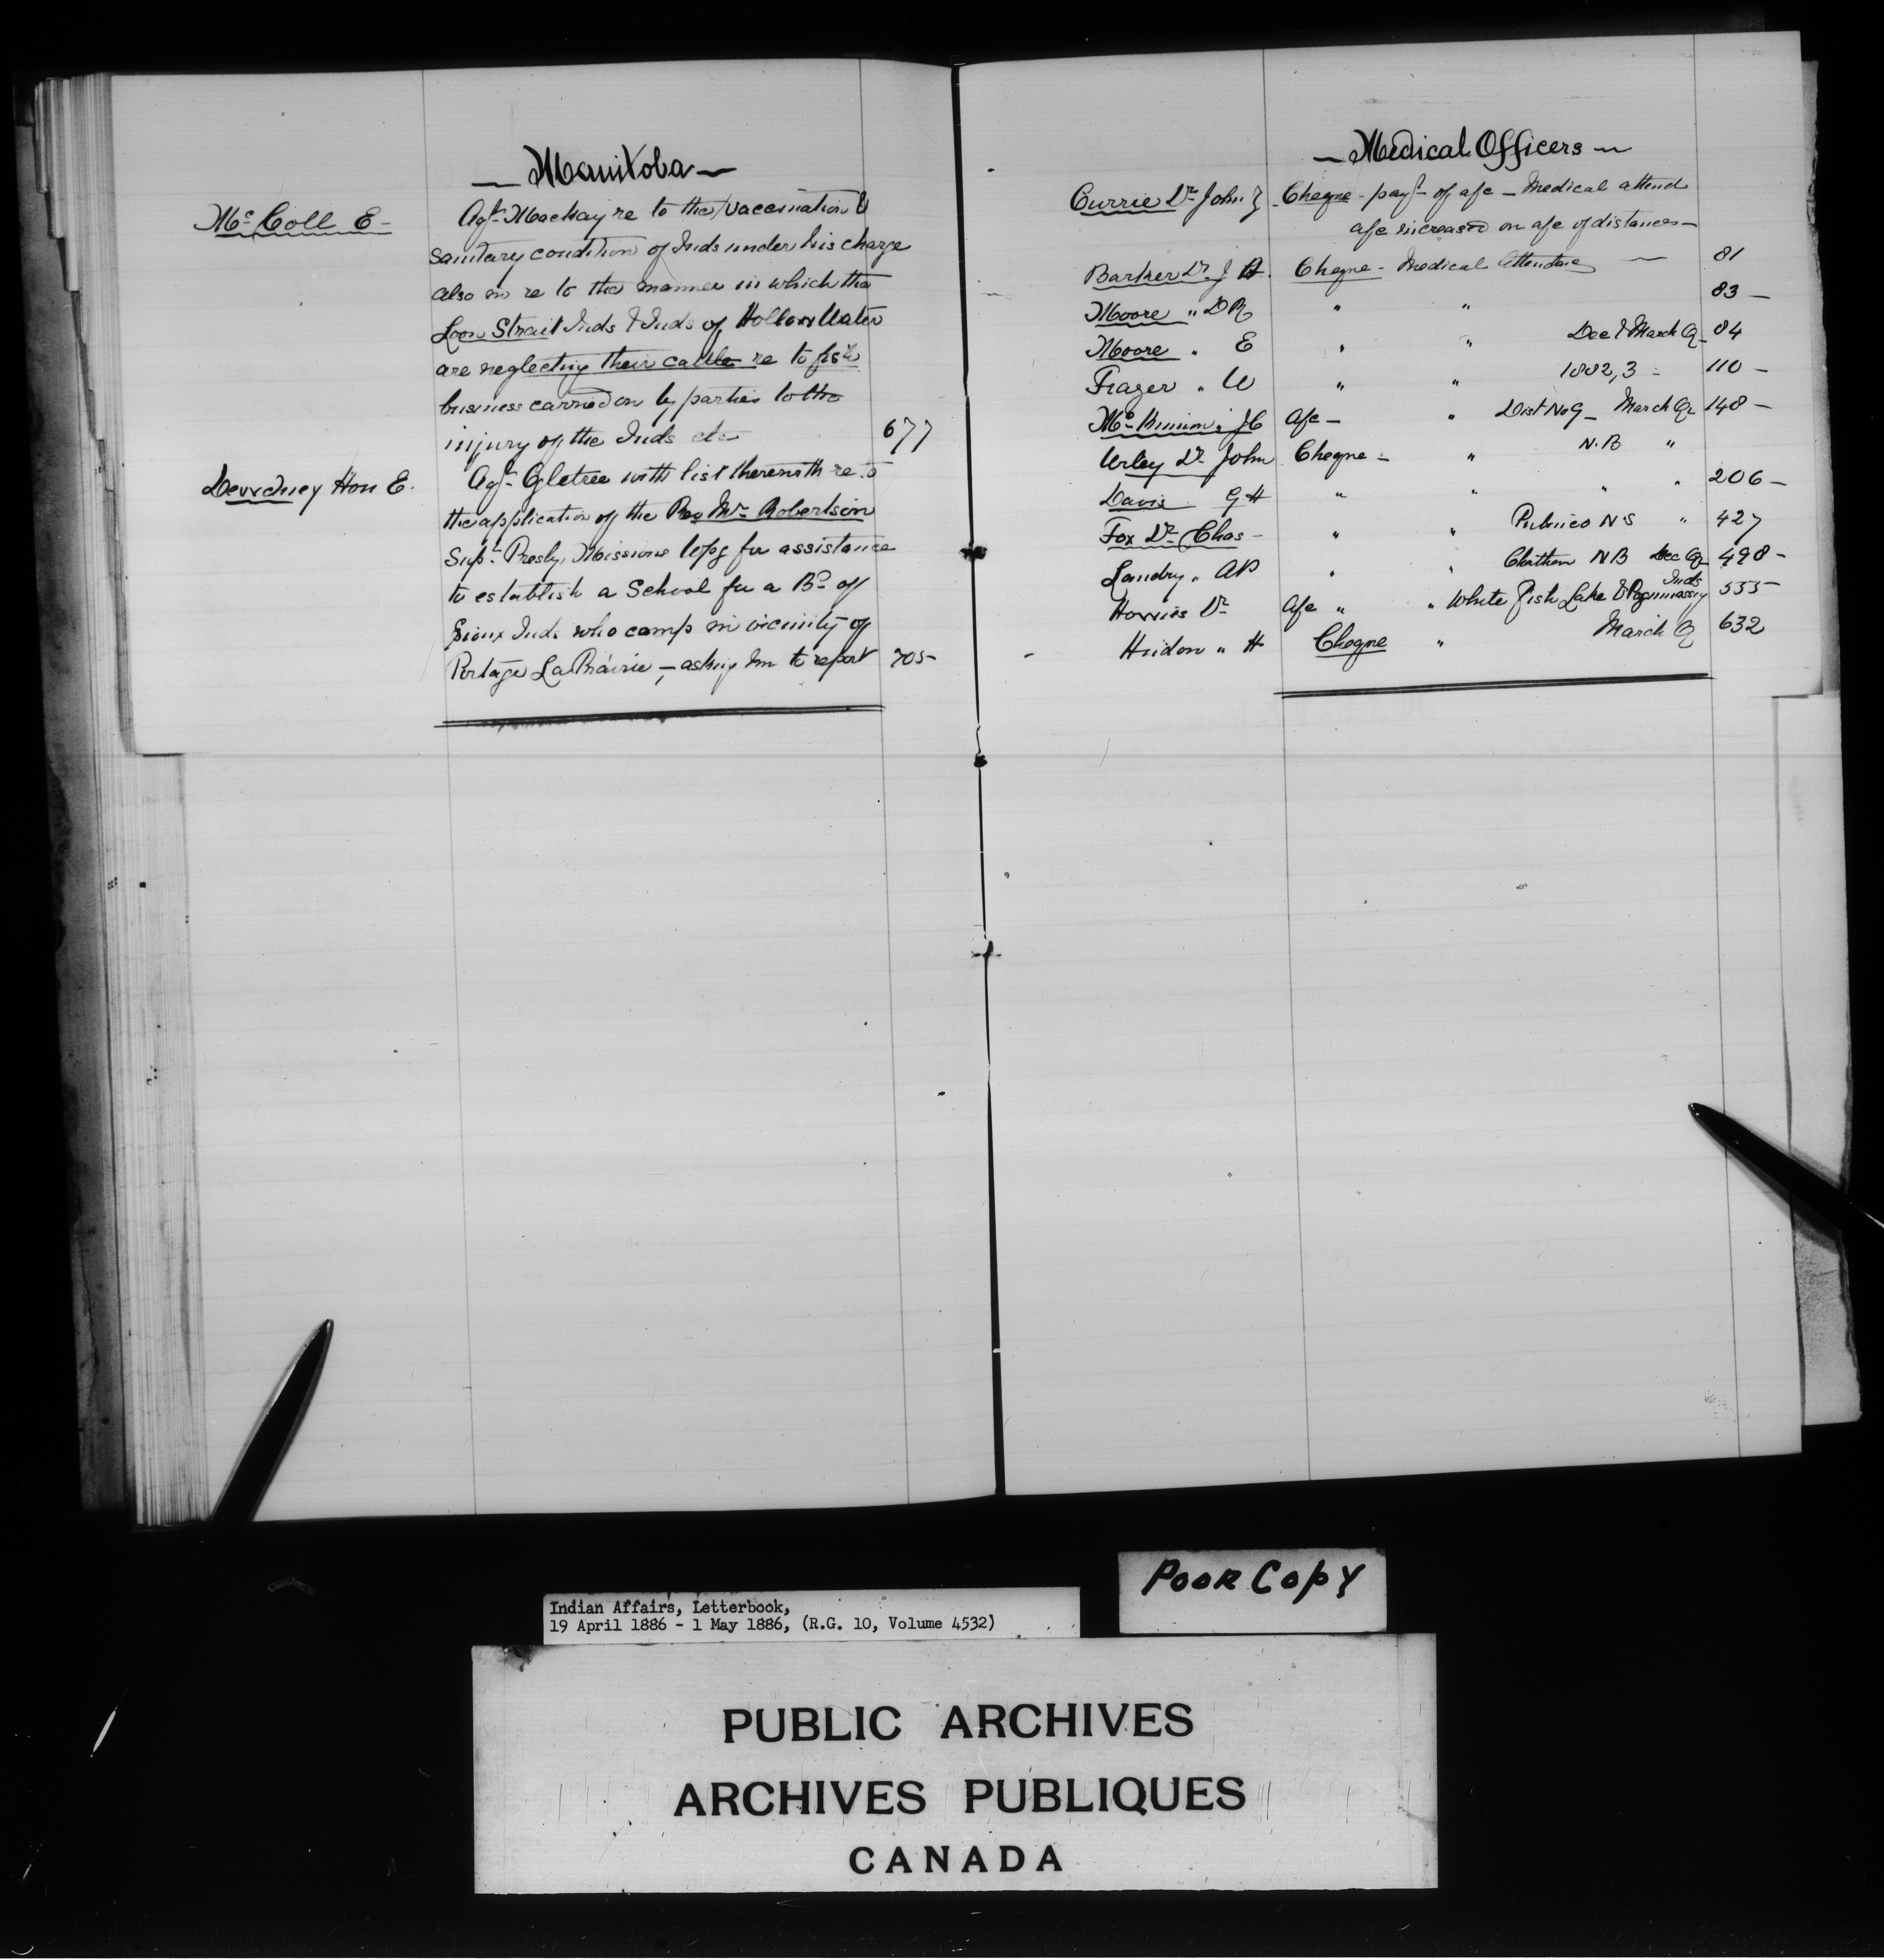 — Manitoba —
Mc Coll E — Agt. Mackay re to the vaccination &
sanitary condition of Inds under his charge
also in re to the manner in which the
Loon Strait Inds & Inds of Hollow Water
are neglecting their cattle re to fish
business carried on by parties to the
injury of the Inds etc 677
Dewdney Hon E. Agt. Ogletree with list therewith re to
the application of the Rev Mr. Robertson
Supt. Presby. Missions Wpg for assistance
to establish a School for a Bd. of
Sioux Inds who camp in vicinity of
Portage La Prairie, — asking him to report 705 —
— Medical Officers —
Currie Dr John Z — Cheque — payt of a/c — Medical attend
a/c increased on a/c of distances —
Barker Dr. J A. Cheque — Medical Attendance — 81
Moore " D R " " 83 —
Moore " E " " Dec & March Q — 84
Frazer " W " " 1882,3 — 110 —
Mc " J C A/c — " Dist No 9 — March Qr 148 —
Urley Dr John Cheque — " N.B "
Davis G H " " " " 206 —
Fox Dr Chas — " " Pubnico N S " 427
Landry " A P " " Chatham N B Dec Qr 498 —
Inds
Dr A/c " " White Fish Lake & 555
" H Cheque " March Q 632
Indian Affairs, Letterbook,
19 April 1886 - 1 May 1886, (R.G. 10, Volume 4532)
POOR COPY
PUBLIC ARCHIVES
ARCHIVES PUBLIQUES
CANADA